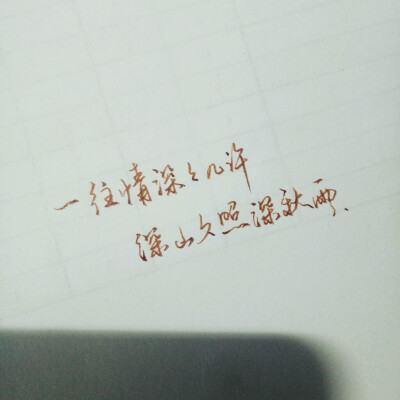 一往情深々几许
深山夕照深秋雨.